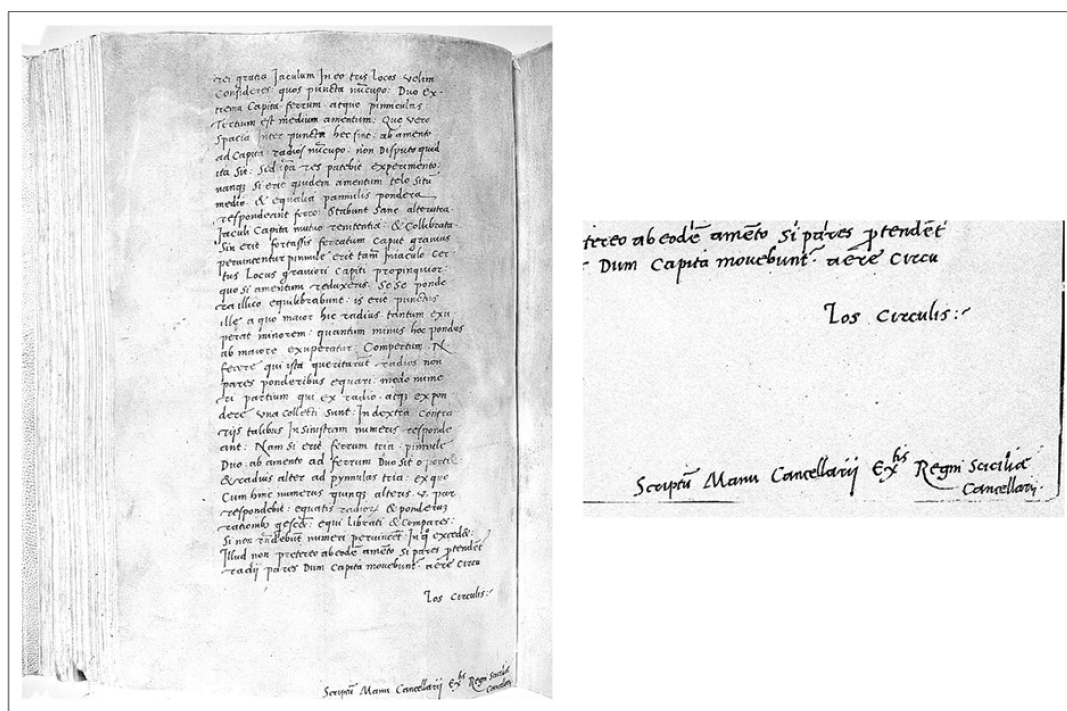 rei gratia Jaculum In eo tris Locos velim
Consideres: quos puncta nũcupo: Duo ex-
trema Capita ferrum atque pinnulas:
Tertium est medium amentum: Que vero
Spacia Inter puncta hec sint: ab amento
ad Capita radios nũcupo: non Disputo quid
ita Sit: Sed ip̃a res patebit experimento:
nanq; Si erit quidem amentum telo Sitũ
medio: & equalia pannulis pondera
respondeant ferro: Stabunt Sane alterutra
Jaculi Capita mutuo renitentia: & Collibrata
Sin erit fortassis ferratum Caput gravius
pervincentur pinnule erit tam̃ Iniaculo Cer
tus Locus graviori Capiti propinquior:
quo Si amentum reduxeris. Se Se ponde
ra illico equilibrabunt: is erit punctus
ille a quo maior hic radius tantum exu
perat minorem: quantum minus hoc pondus
ab maiore exuperatur: Compertum N.
fecere qui ista queriturũt radios non
pares ponderibus equari: modo nume
ri partium qui ex radio. atq; ex pon
dere una Collecti Sunt: In dextra Contra
rijs talibus In sinistram numeris responde
ant: Nam Si erit ferrum tria: pinnule
Duo: ab amento ad ferrum Duo Sit oportet:
& radius alter ad pynnulas tria: ex quo
Cum hinc numerus quinq; alteris .v. par
respondebit: equatis &
rationibus equi Librati & Compares:
Si non numeri pervincet: In
Illud non pretereo ab eodẽ amẽto Si pares ptendẽt
radii pares Dum Capita movebunt. aere Circu
los Circulis:
Scriptũ Manu Cancellarii Ex^tis Regni Siciliæ
Cancellarij.
tereo ab eodẽ amẽto Si pares ptendẽt
Dum Capita movebunt. aere Circu
los Circulis:
Scriptũ Manu Cancellarii Ex^tis Regni Siciliæ
Cancellarij.